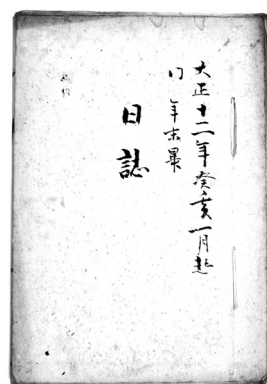 大正十二年癸亥一月起
〃年末畢
日誌